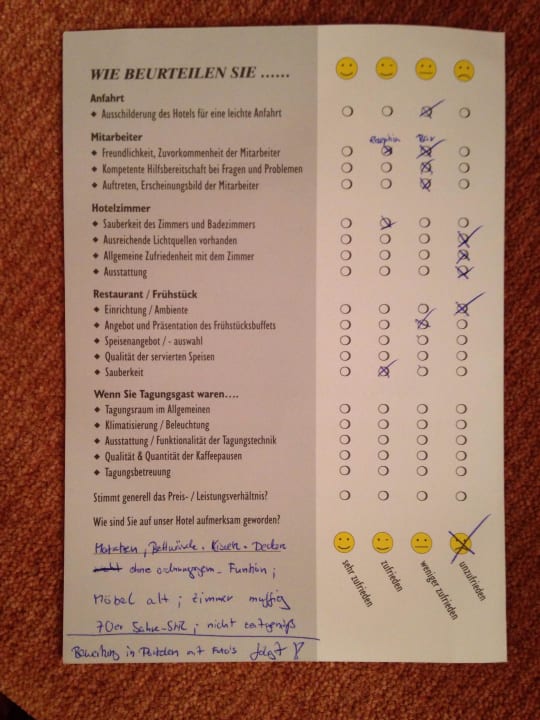 WIE BEURTEILEN SIE ......
Anfahrt
Ausschilderung des Hotels für eine leichte Anfahrt
Mitarbeiter
Rezeption
Freundlichkeit, Zuvorkommenheit der Mitarbeiter
Kompetente Hilfsbereitschaft bei Fragen und Problemen
Auftreten, Erscheinungsbild der Mitarbeiter
Hotelzimmer
Sauberkeit des Zimmers und Badezimmers
Ausreichende Lichtquellen vorhanden
Allgemeine Zufriedenheit mit dem Zimmer
Ausstattung
Restaurant / Frühstück
Einrichtung / Ambiente
Angebot und Präsentation des Frühstücksbuffets
Speisenangebot / - auswahl
Qualität der servierten Speisen
Sauberkeit
Wenn Sie Tagungsgast waren....
Tagungsraum im Allgemeinen
Klimatisierung / Beleuchtung
Ausstattung / Funktionalität der Tagungstechnik
Qualität & Quantität der Kaffeepausen
Tagungsbetreuung
Stimmt generell das Preis- / Leistungsverhältnis?
Wie sind Sie auf unser Hotel aufmerksam geworden?
sehr zufrieden
zufrieden
weniger zufrieden
unzufrieden
Matratzen, Bettwäsche, Kissen, Decken
ohne ordnungsgem. Funktion;
Möbel alt; Zimmer muffig
70er Jahre-Stil; nicht zeitgemäß
Bewertung in Portalen mit Foto's folgt!